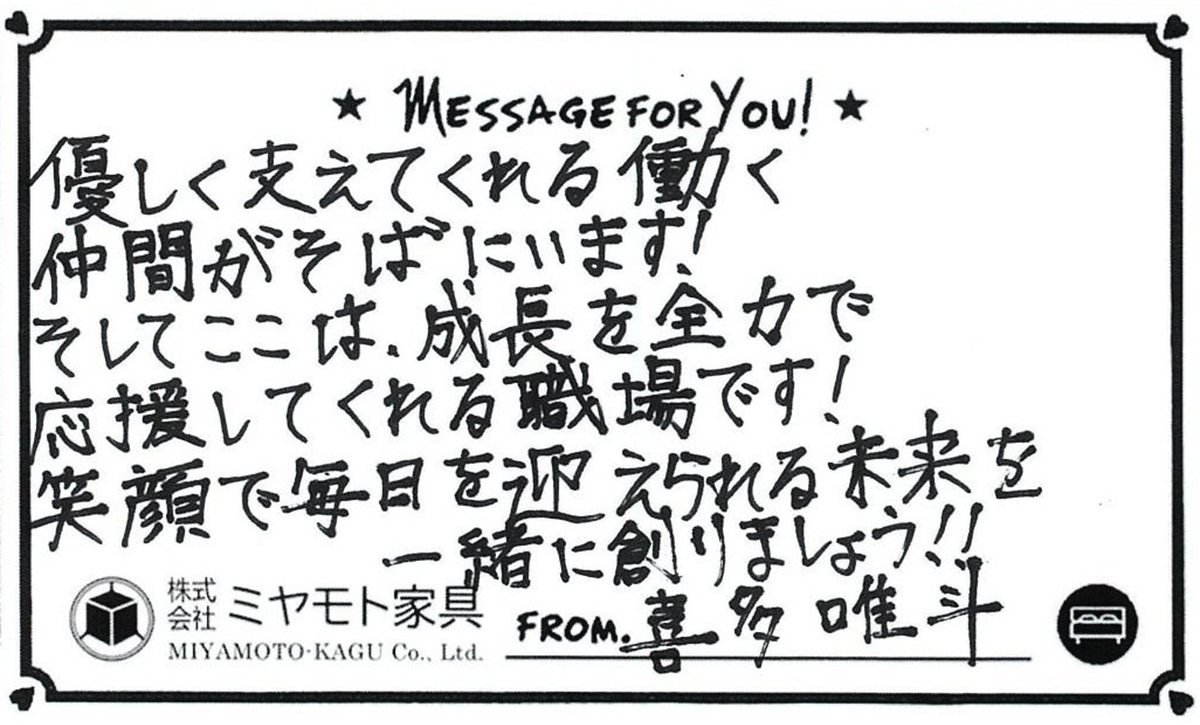 ★ MESSAGE FOR YOU! ★
優しく支えてくれる働く
仲間がそばにいます!
そしてここは、成長を全力で
応援してくれる職場です!
笑顔で毎日を迎えられる未来を
一緒に創りましょう!!
株式会社 ミヤモト家具
MIYAMOTO-KAGU Co., Ltd.
FROM. 喜多 唯斗